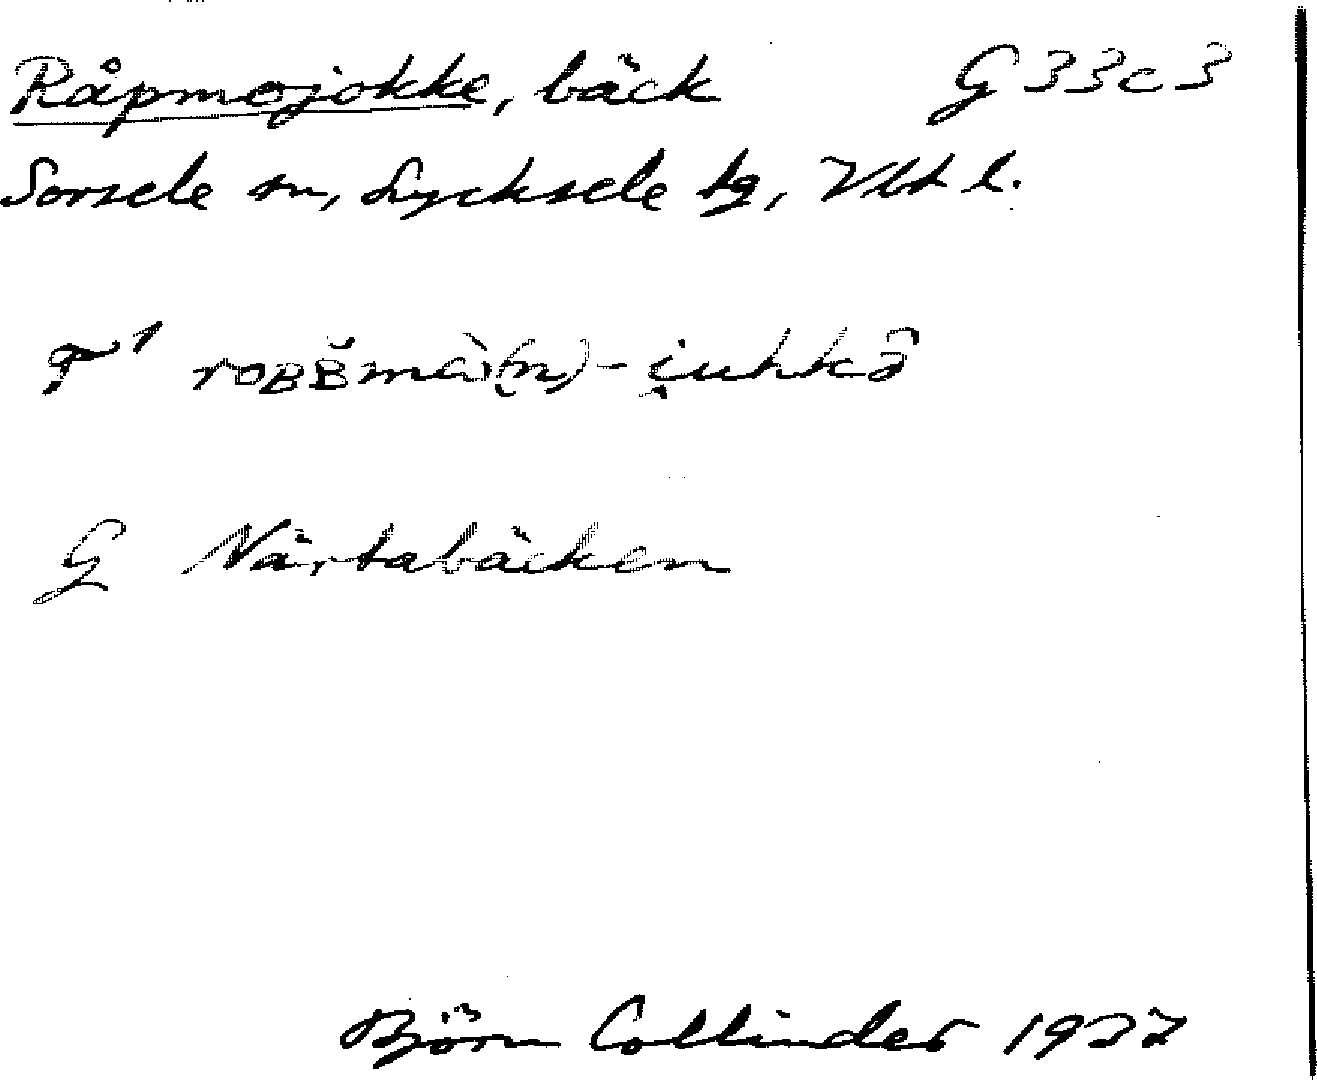 Råpmojokke, bäck G 33c3
Sorsele sn, Lycksele tg, Vbt l.
F¹ roʙʙ̆mà(n)-i̯uhkə̂
G Närtabäcken
Björn Collinder 1937